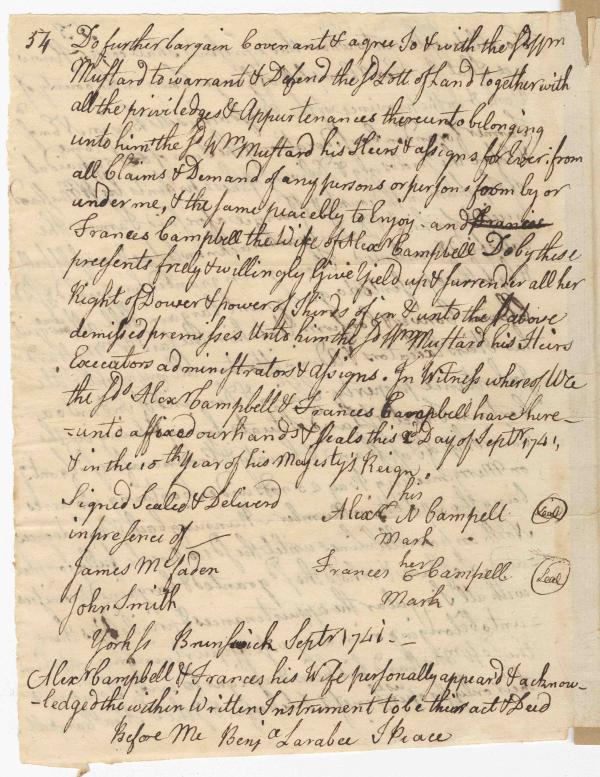 54 Do further bargain Covenant & agree To & with the Sd Wm
Mustard to warrant & Defend the sd Lott of Land together with
all the priviledges & Appurtenances thereunto belonging
unto him the sd Wm Mustard his Heirs & assigns for Ever: from
all Claims & Demand of any persons or person from by or
under me, & the same peacebly to Enjoy. and Frances
Frances Campbell the Wife of Alexr Campbell Do by these
presents freely & willingly Give Yield up & surrender all her
Right of Dower & power of Thirds of in & unto the above
demissed premisses Unto him the sd Wm Mustard his Heirs
Executors administrators & assigns. In Witness whereof We
the sds Alexr Campbell & Frances Campbell have here=
=unto affixed our hands & Seals this Day of Septr 1741,
& in the 15th Year of his Majesty's Reign
Signed Sealed & Deliverd
in presence of
James Mcfaden
John Smith
his
Alixr N Campell Seal
Mark
Frances her C Campell Seal
Mark
York ss Brunswick Septr 1741 –
Alexr Campbell & Frances his Wife personally appeard & acknow-
-ledged the within Written Instrument to be their act & Deed
Before Me Benja Larabee J Peace